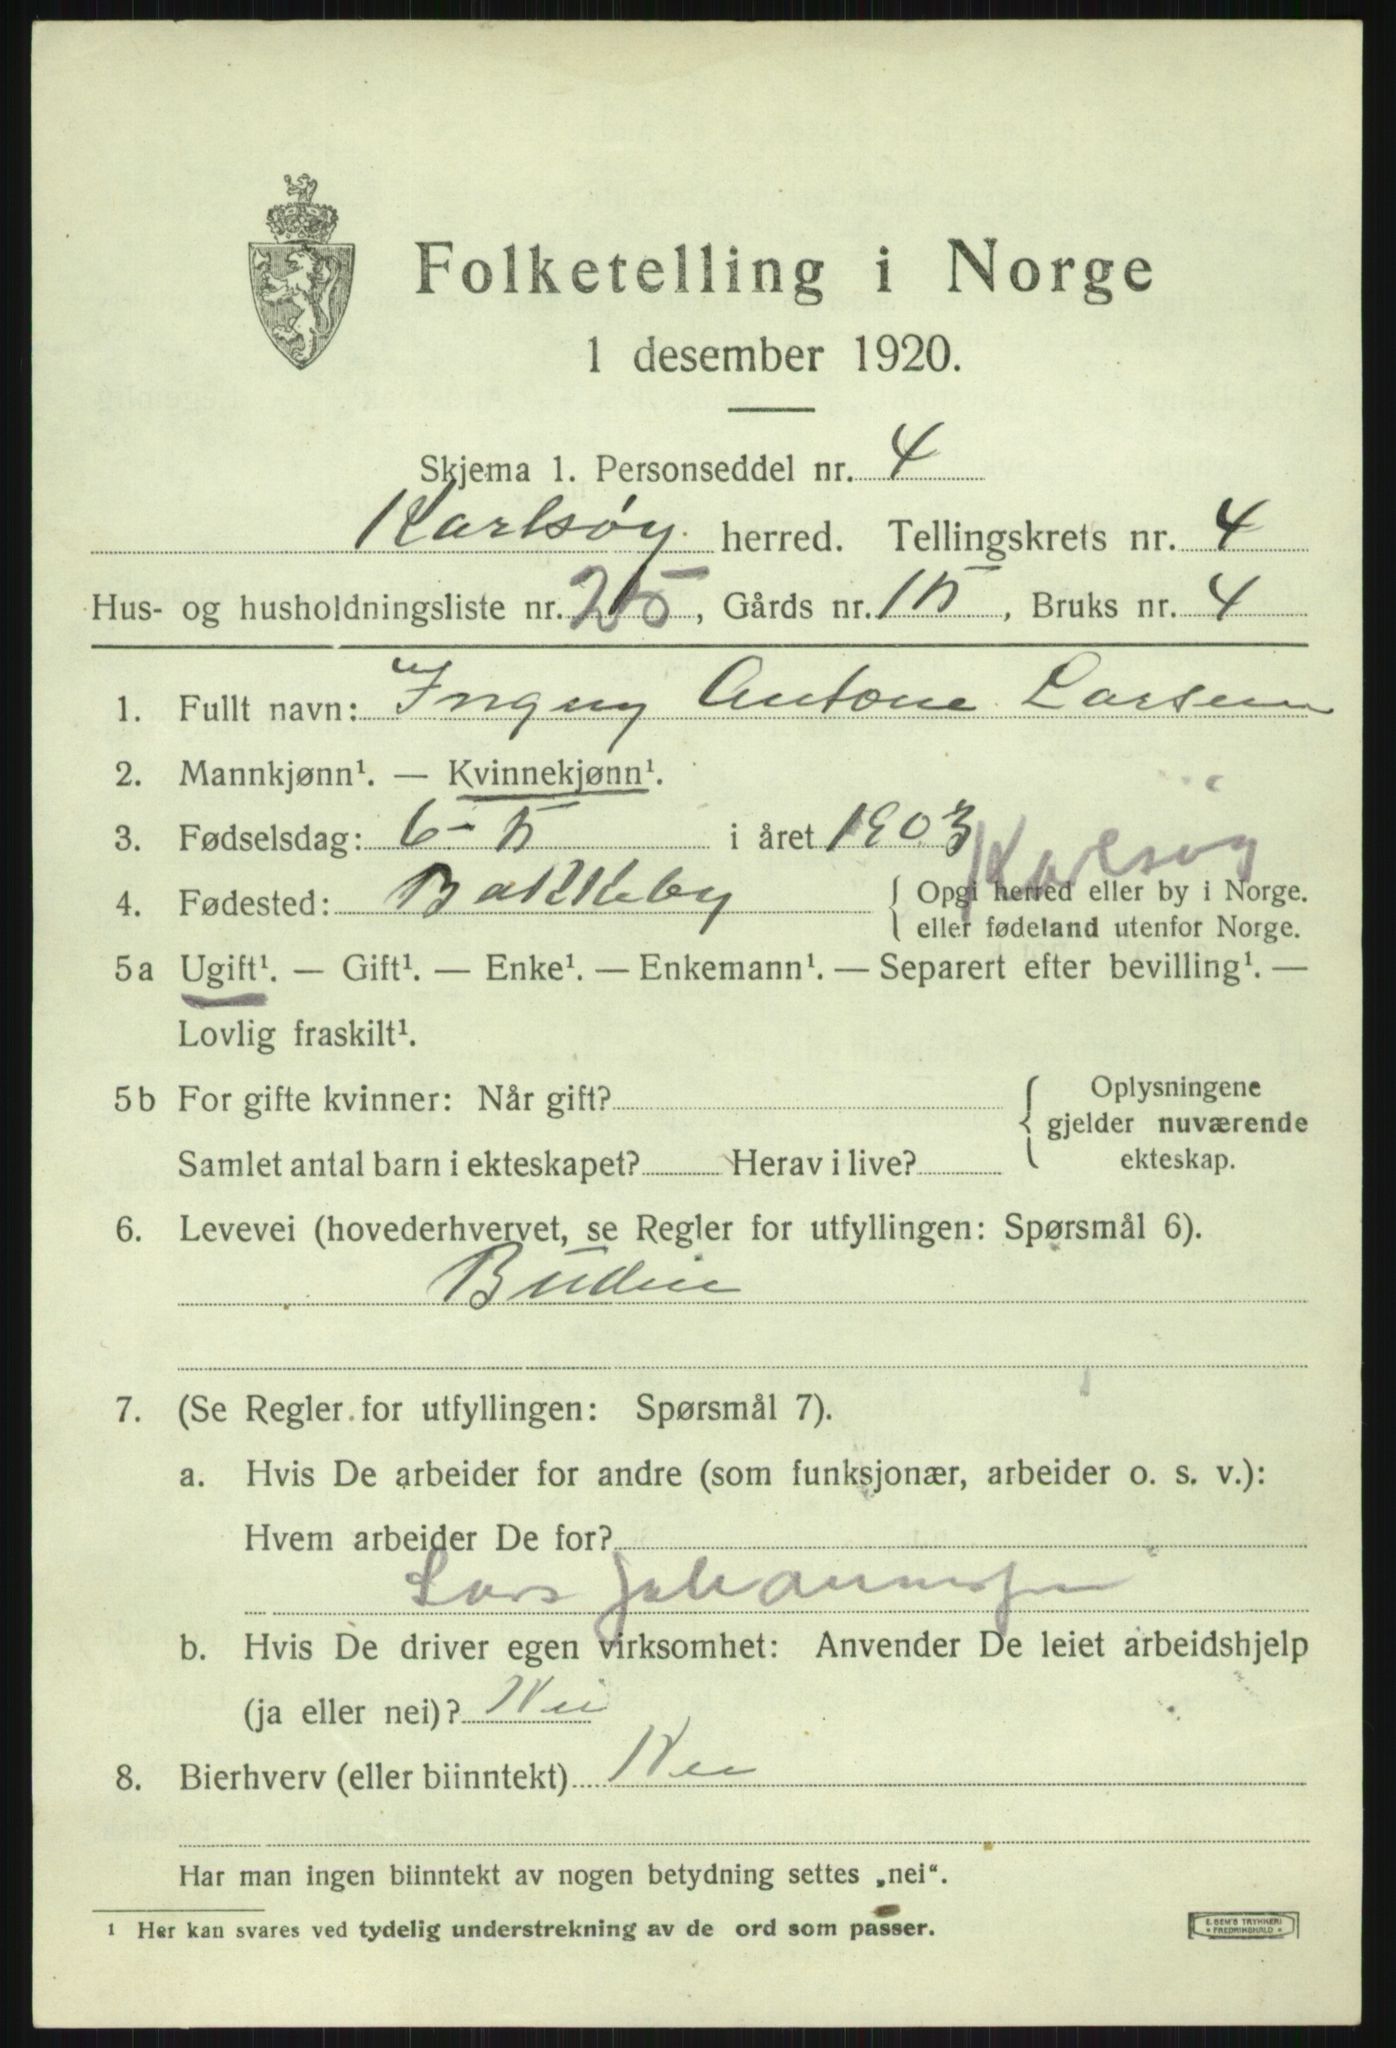 Folketelling i Norge
1 desember 1920.
Skjema 1. Personseddel nr. 4
Karlsøy herred. Tellingskrets nr. 4
Hus- og husholdningsliste nr. 25, Gårds nr. 15, Bruks nr. 4
1. Fullt navn: Inguy Antone Larsen
2. Mannkjønn¹. — Kvinnekjønn¹.
3. Fødselsdag: 6-5 i året 1903
Karlsøy
4. Fødested: Bakkeby { Opgi herred eller by i Norge.
eller fødeland utenfor Norge.
5a Ugift¹. — Gift¹. — Enke¹. — Enkemann¹. — Separert efter bevilling¹. —
Lovlig fraskilt¹.
5b For gifte kvinner: Når gift? { Oplysningene
gjelder nuværende
Samlet antal barn i ekteskapet? Herav i live? ekteskap.
6. Levevei (hovederhvervet, se Regler for utfyllingen: Spørsmål 6).
Budeie
7. (Se Regler for utfyllingen: Spørsmål 7).
a. Hvis De arbeider for andre (som funksjonær, arbeider o. s. v.):
Hvem arbeider De for?
Lars Johannessen
b. Hvis De driver egen virksomhet: Anvender De leiet arbeidshjelp
(ja eller nei)? Nei
8. Bierhverv (eller biinntekt) Nei
Har man ingen biinntekt av nogen betydning settes „nei“.
¹ Her kan svares ved tydelig understrekning av de ord som passer.
E. SEM'S TRYKKERI
FREDRIKSHALD